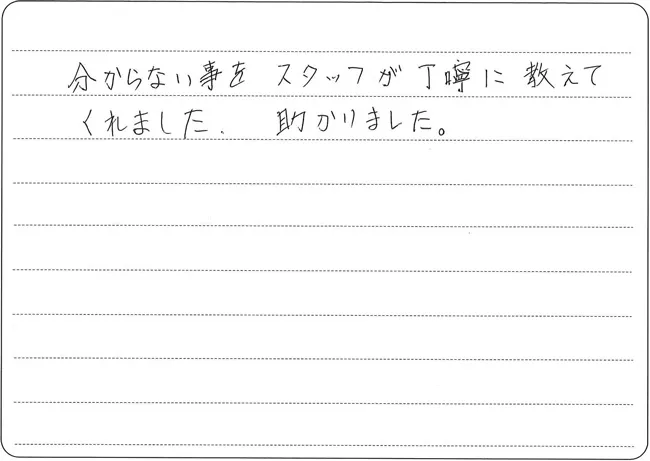 分からない事を スタッフが丁寧に教えて
くれました. 助かりました。